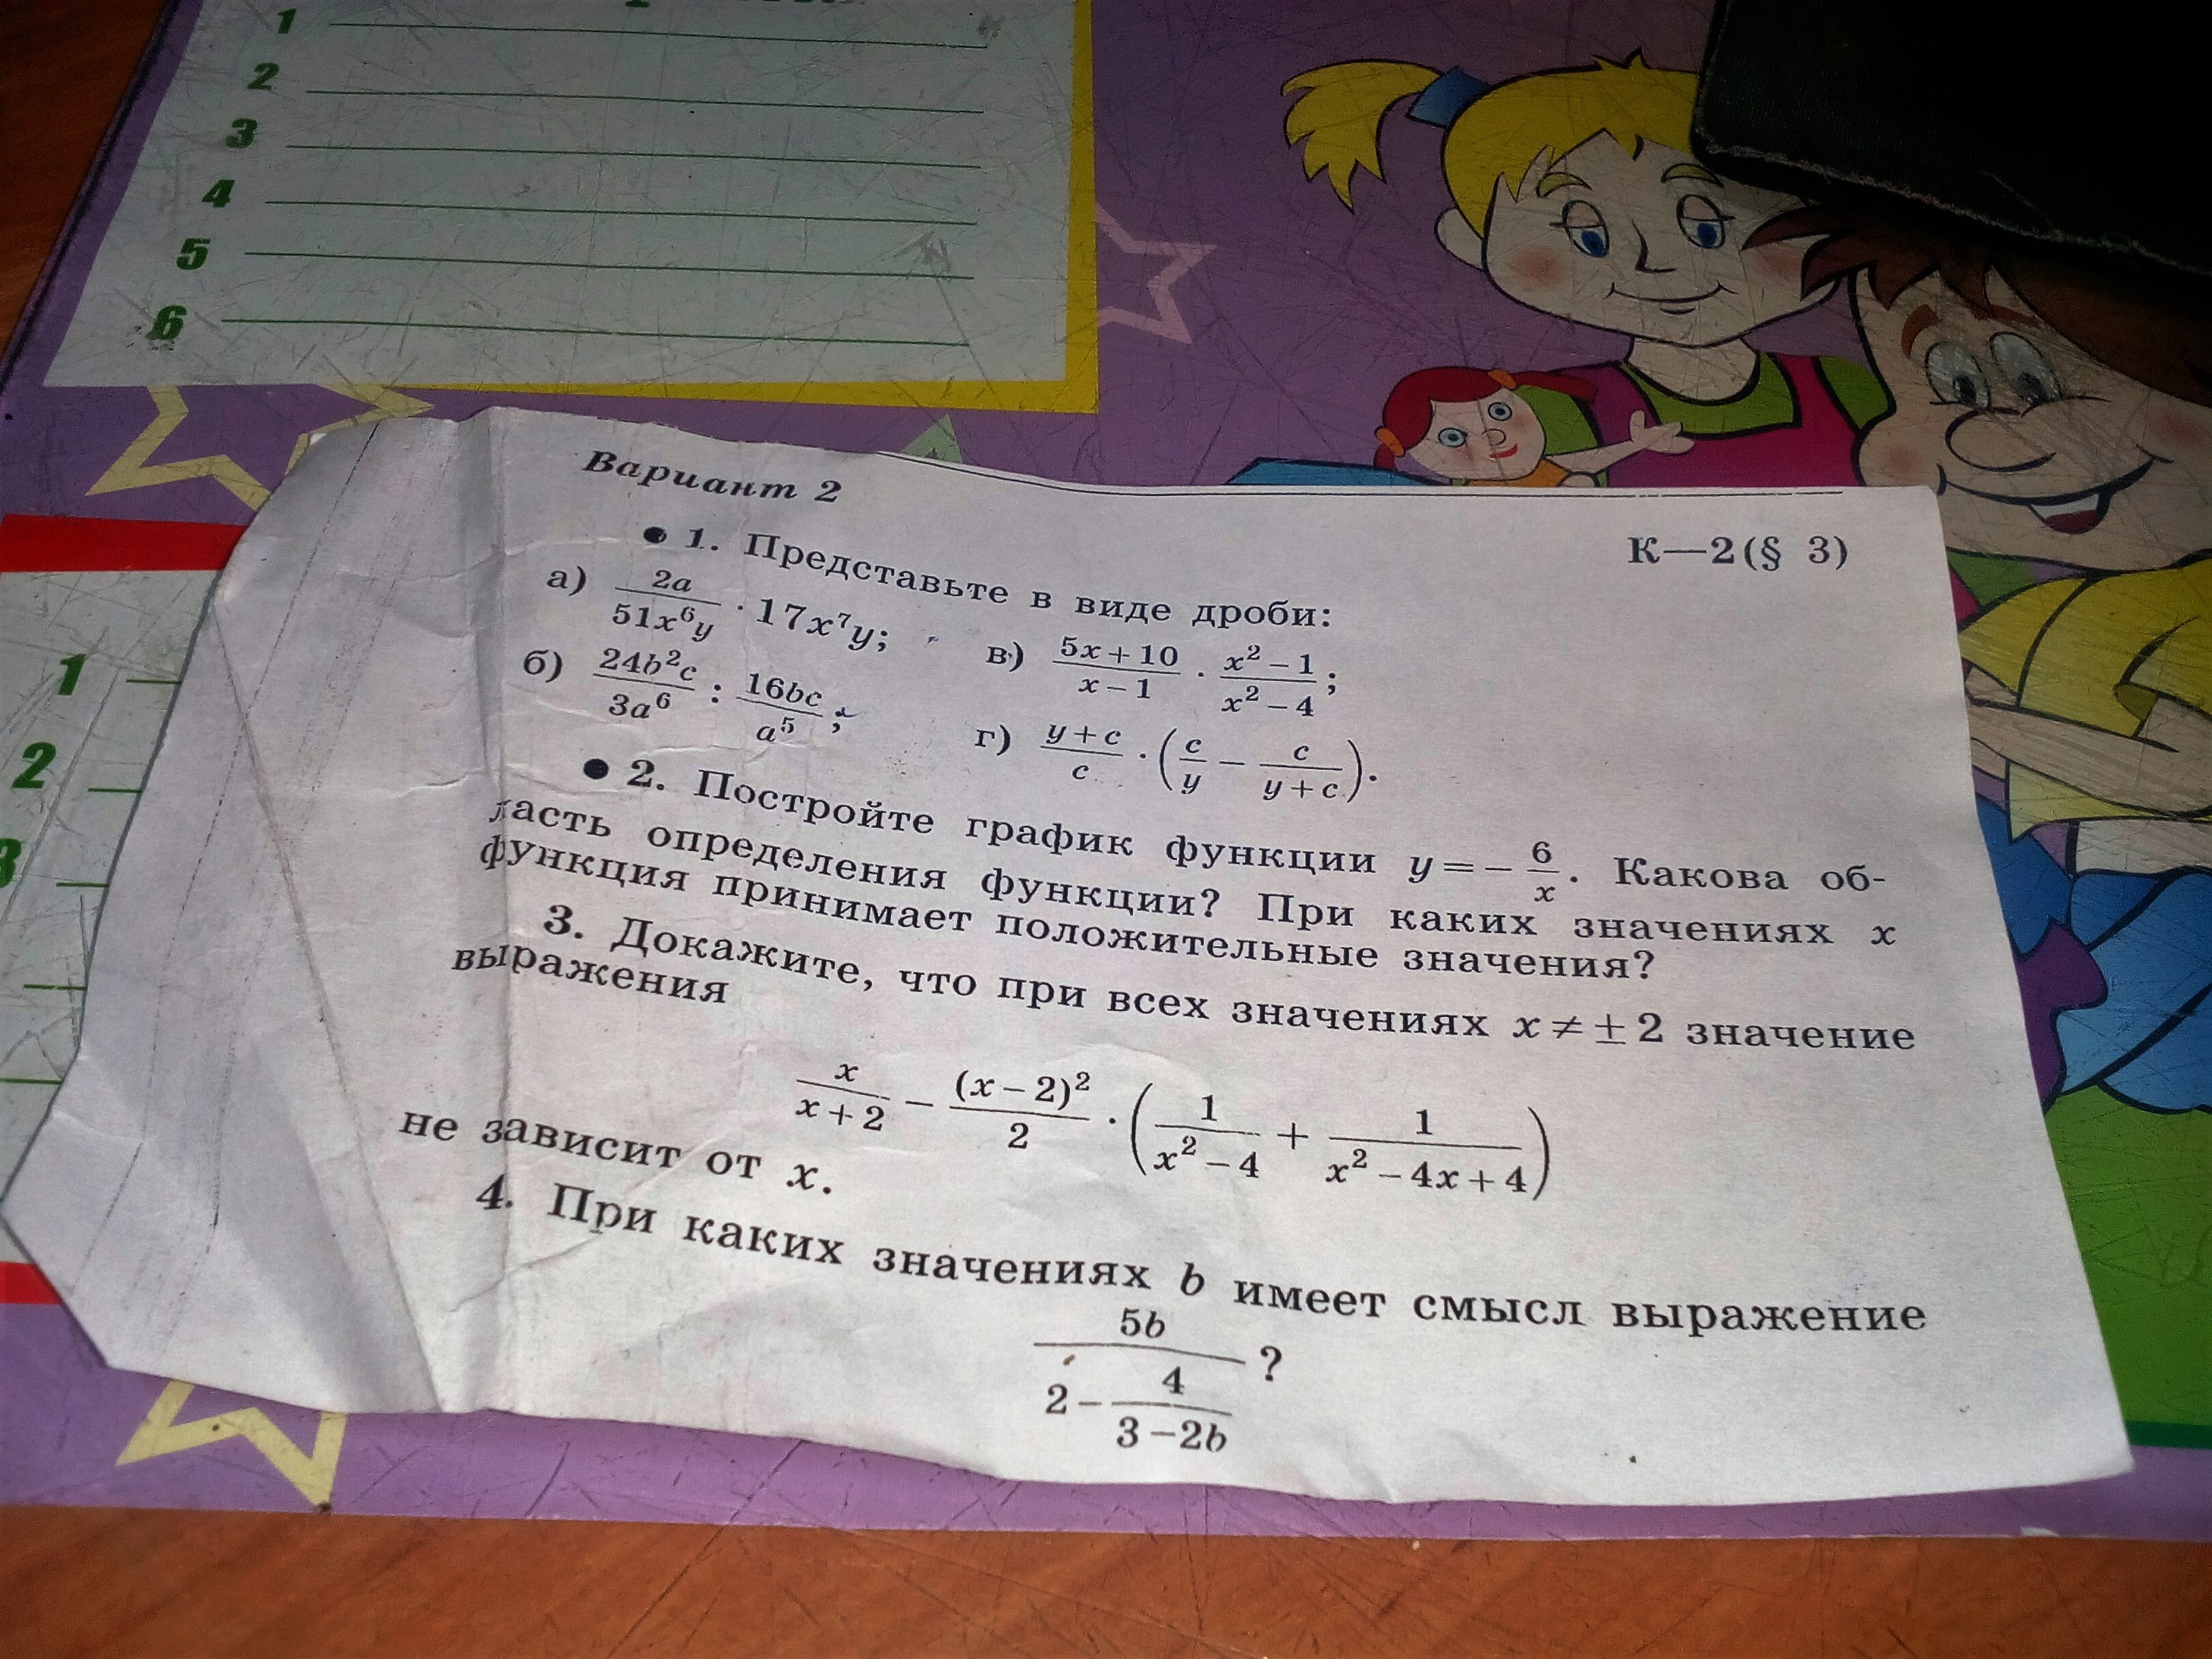 1
2
3
4
5
6
Вариант 2
К—2(§ 3)
• 1. Представьте в виде дроби:
а) 2a/(51x⁶y) · 17x⁷y; в) (5x+10)/(x−1) · (x²−1)/(x²−4);
б) 24b²c/(3a⁶) : 16bc/a⁵; г) (y+c)/c · (c/y − c/(y+c)).
• 2. Постройте график функции y=−6/x. Какова об-
ласть определения функции? При каких значениях x
функция принимает положительные значения?
3. Докажите, что при всех значениях x≠±2 значение
выражения
x/(x+2) − (x−2)²/2 · (1/(x²−4) + 1/(x²−4x+4))
не зависит от x.
4. При каких значениях b имеет смысл выражение
5b/(2−4/(3−2b)) ?
1
2
3